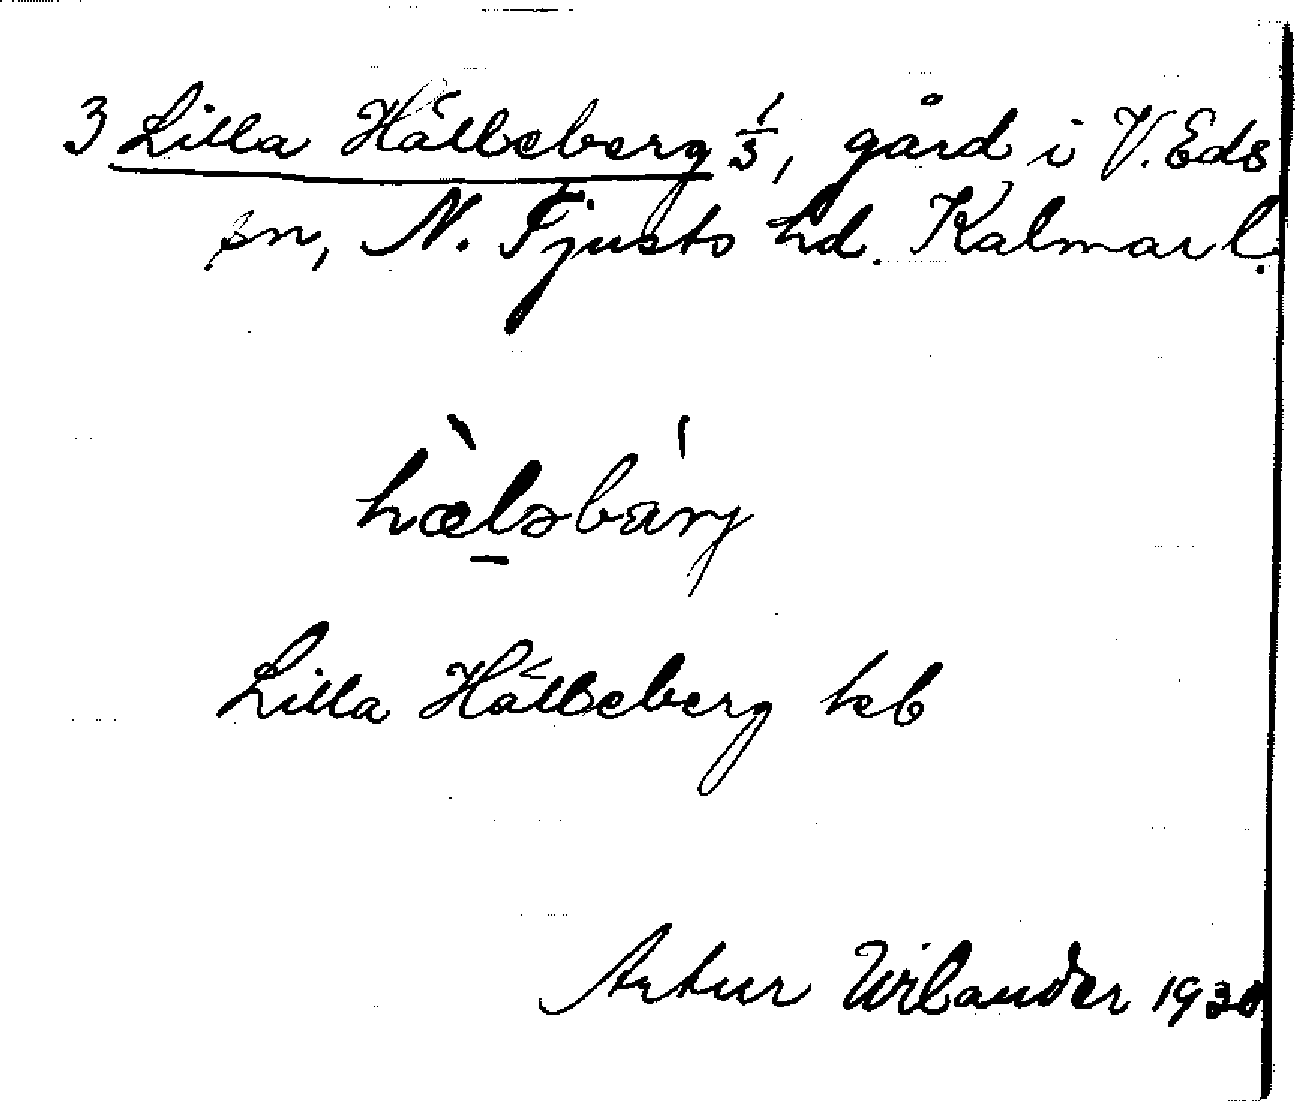 3 Lilla Hälleberg 1/3, gård i V. Eds
sn, N. Tjusts hd. Kalmar l.
hæ̀ləbàrj
Lilla Hälleberg keb
Artur Wilander 1930